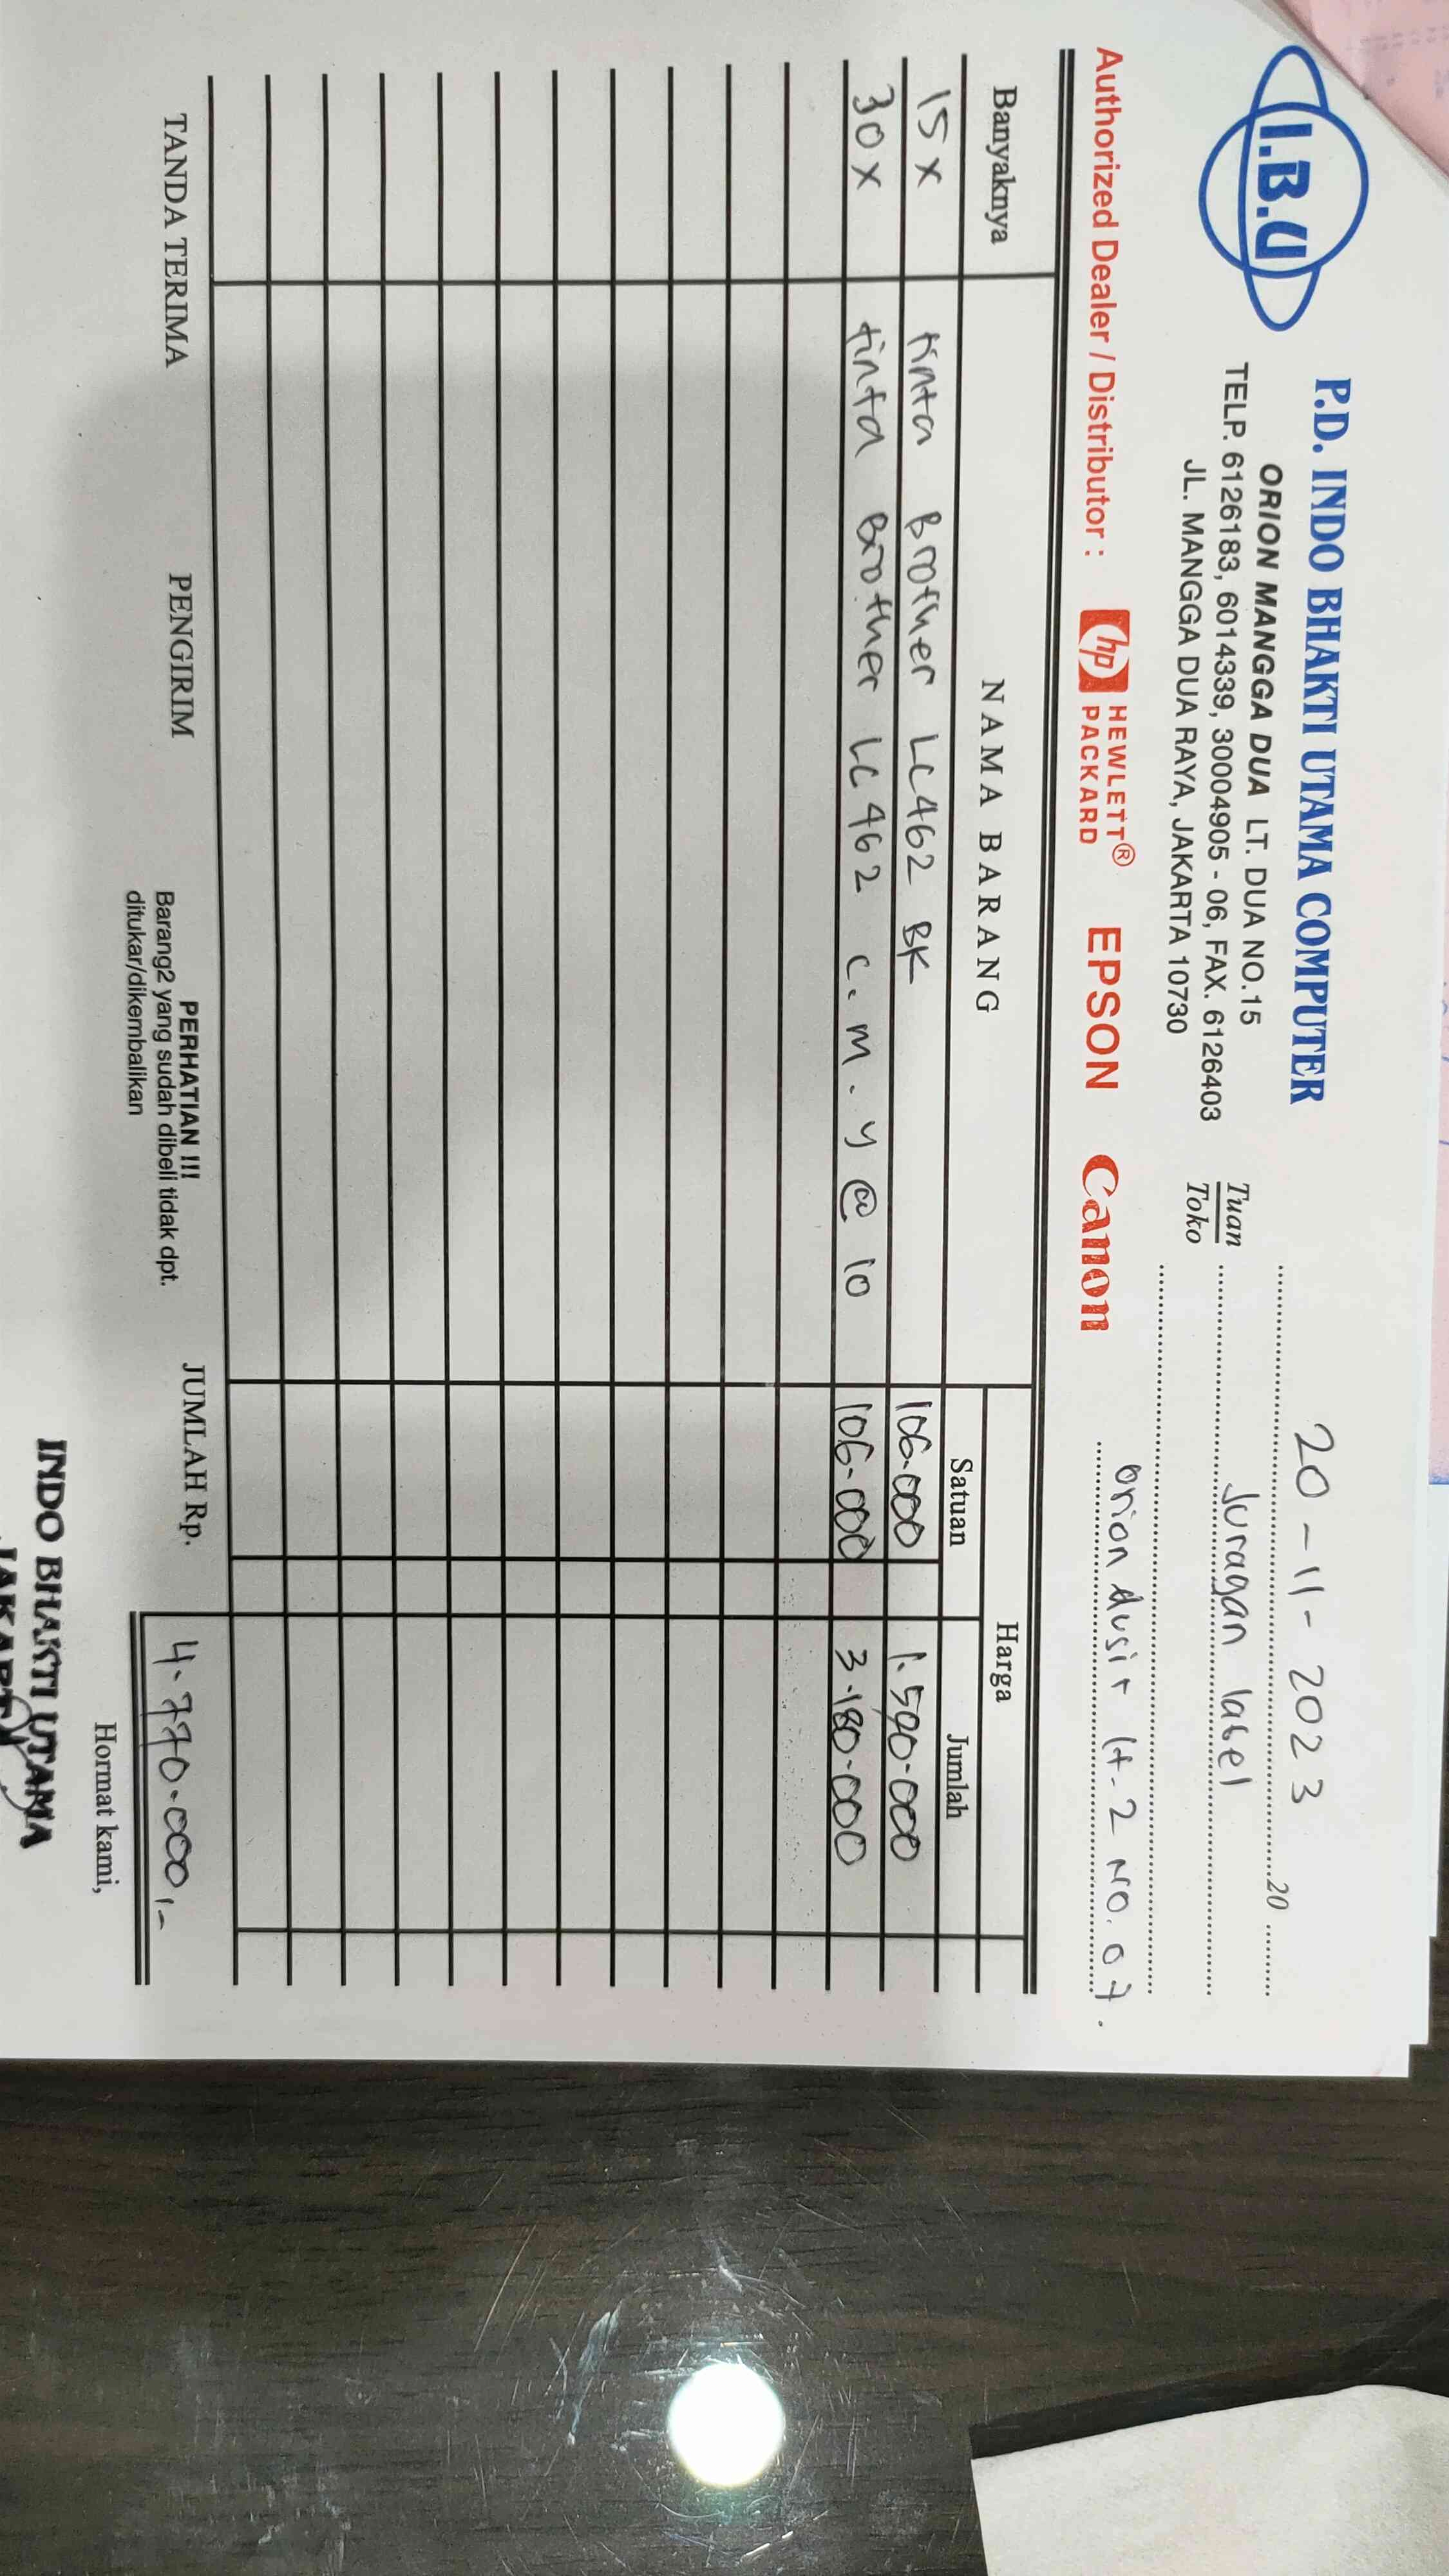 I.B.U
P.D. INDO BHAKTI UTAMA COMPUTER
ORION MANGGA DUA LT. DUA NO.15
TELP. 6126183, 6014339, 30004905 - 06, FAX. 6126403
JL. MANGGA DUA RAYA, JAKARTA 10730
20 - 11 - 2023 20
Tuan
Toko
Juragan label
Orion dusit lt. 2 No. 07.
Authorized Dealer / Distributor : hp HEWLETT® PACKARD EPSON Canon
Banyaknya NAMA BARANG Harga
Satuan Jumlah
15 x tinta Brother LC462 BK 106.000 1.590.000
30 x tinta Brother LC462 C.M.Y @ 10 106.000 3.180.000
TANDA TERIMA PENGIRIM JUMLAH Rp. 4.770.000,-
PERHATIAN !!!
Barang2 yang sudah dibeli tidak dpt.
ditukar/dikembalikan
Hormat kami,
INDO BHAKTI UTAMA